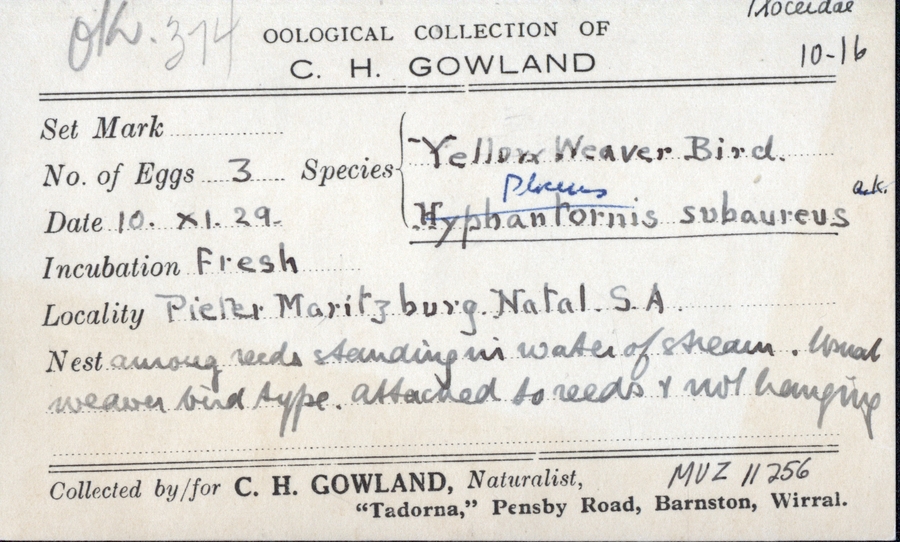 Ploceidae
OK. 374
OOLOGICAL COLLECTION OF
10-16
C. H. GOWLAND
Set Mark
Yellow Weaver Bird.
No. of Eggs 3 Species
Ploceus
Date 10. XI. 29.
Hyphantornis subaureus
Incubation Fresh
Locality Pieter Maritzburg. Natal. S A.
Nest among reeds standing in water of stream. Usual
weaver bird type. attached to reeds & not hanging
Collected by/for C. H. GOWLAND, Naturalist,
MVZ 11256
"Tadorna," Pensby Road, Barnston, Wirral.